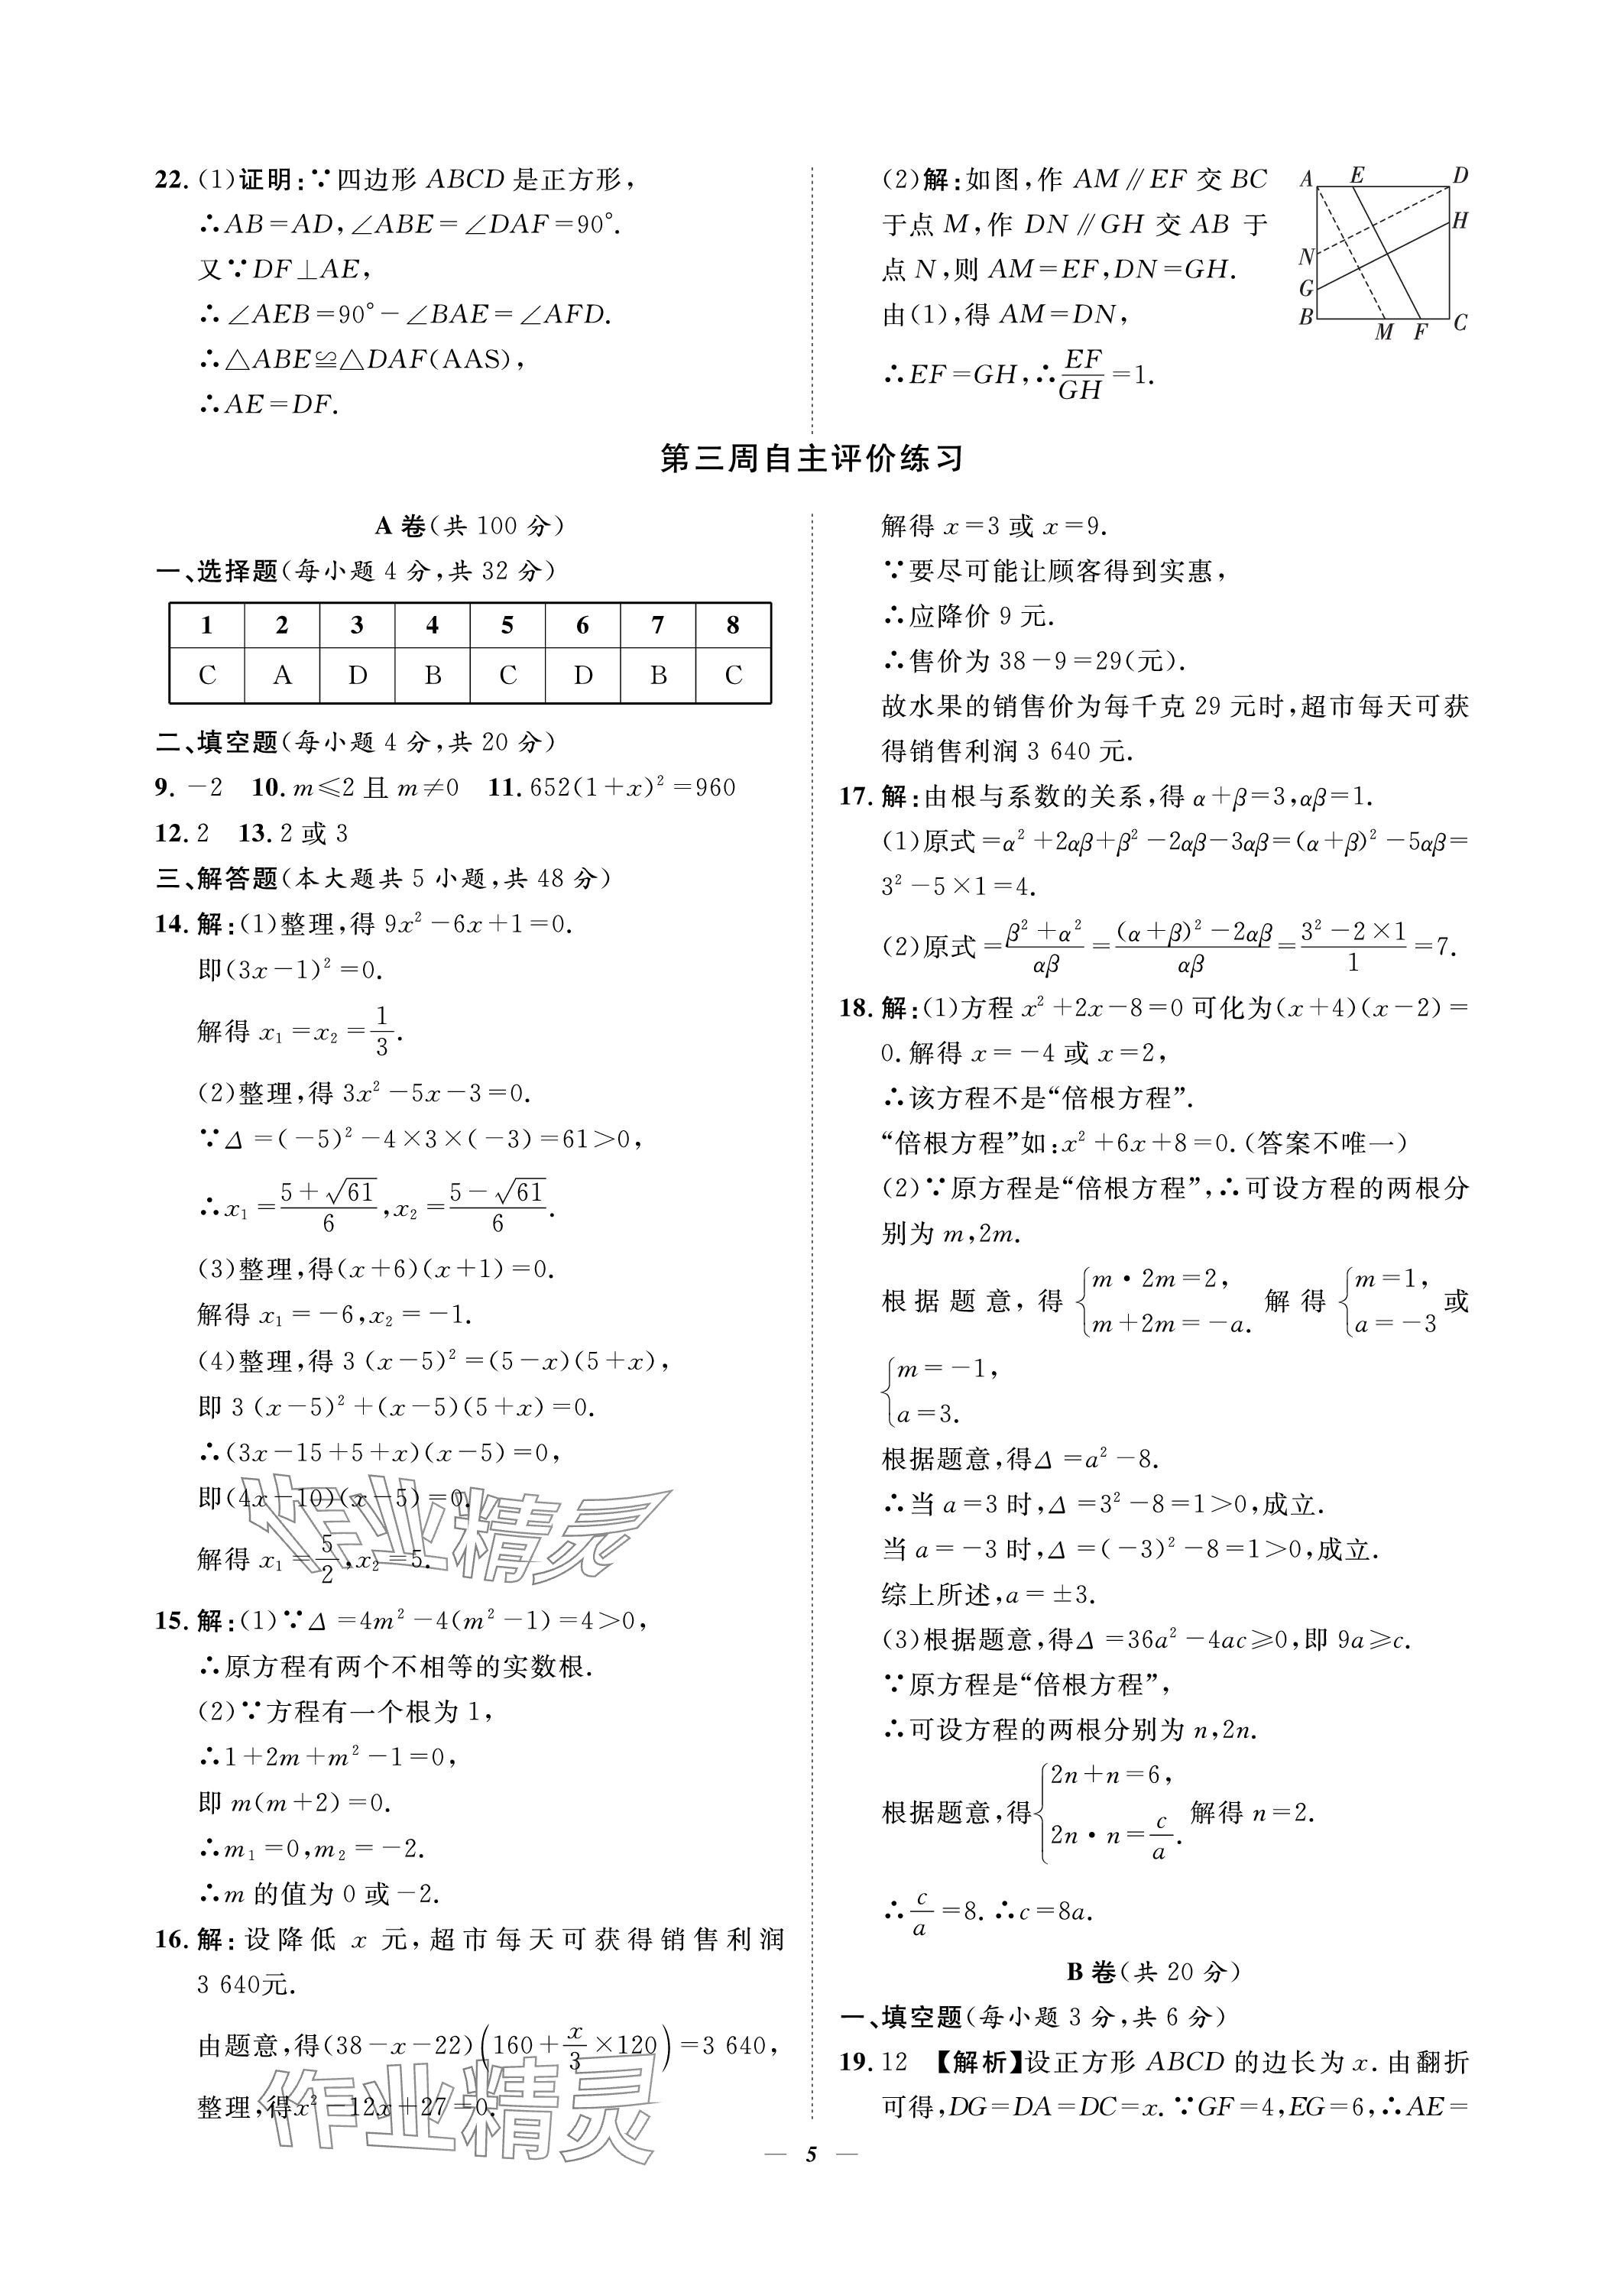 22. (1)证明:∵四边形 ABCD 是正方形,
∴AB=AD,∠ABE=∠DAF=90°.
又∵DF⊥AE,
∴∠AEB=90°-∠BAE=∠AFD.
∴△ABE≌△DAF(AAS),
∴AE=DF.
(2)解:如图,作 AM∥EF 交 BC
于点 M,作 DN∥GH 交 AB 于
点 N,则 AM=EF,DN=GH.
由(1),得 AM=DN,
∴EF=GH,∴EF/GH=1.
A E D
H
N
G
B M F C
第三周自主评价练习
A 卷(共 100 分)
一、选择题(每小题 4 分,共 32 分)
1 2 3 4 5 6 7 8
C A D B C D B C
二、填空题(每小题 4 分,共 20 分)
9. -2 10. m≤2 且 m≠0 11. 652(1+x)²=960
12. 2 13. 2 或 3
三、解答题(本大题共 5 小题,共 48 分)
14. 解:(1)整理,得 9x²-6x+1=0.
即(3x-1)²=0.
解得 x₁=x₂=1/3.
(2)整理,得 3x²-5x-3=0.
∵Δ=(-5)²-4×3×(-3)=61>0,
∴x₁=(5+√61)/6,x₂=(5-√61)/6.
(3)整理,得(x+6)(x+1)=0.
解得 x₁=-6,x₂=-1.
(4)整理,得 3(x-5)²=(5-x)(5+x),
即 3(x-5)²+(x-5)(5+x)=0.
∴(3x-15+5+x)(x-5)=0,
即(4x-10)(x-5)=0.
解得 x₁=5/2,x₂=5.
作业精灵
15. 解:(1)∵Δ=4m²-4(m²-1)=4>0,
∴原方程有两个不相等的实数根.
(2)∵方程有一个根为 1,
∴1+2m+m²-1=0,
即 m(m+2)=0.
∴m₁=0,m₂=-2.
∴m 的值为 0 或-2.
16. 解:设降低 x 元,超市每天可获得销售利润
3 640元.
由题意,得(38-x-22)(160+x/3×120)=3 640,
整理,得x²-12x+27=0.
作业精灵
解得 x=3 或 x=9.
∵要尽可能让顾客得到实惠,
∴应降价 9 元.
∴售价为 38-9=29(元).
故水果的销售价为每千克 29 元时,超市每天可获
得销售利润 3 640 元.
17. 解:由根与系数的关系,得 α+β=3,αβ=1.
(1)原式=α²+2αβ+β²-2αβ-3αβ=(α+β)²-5αβ=
3²-5×1=4.
(2)原式=(β²+α²)/αβ=((α+β)²-2αβ)/αβ=(3²-2×1)/1=7.
18. 解:(1)方程 x²+2x-8=0 可化为(x+4)(x-2)=
0.解得 x=-4 或 x=2,
∴该方程不是“倍根方程”.
“倍根方程”如:x²+6x+8=0.(答案不唯一)
(2)∵原方程是“倍根方程”,∴可设方程的两根分
别为 m,2m.
根据题意,得{m·2m=2, m+2m=-a. 解得{m=1, a=-3 或
{m=-1, a=3.
根据题意,得Δ=a²-8.
∴当 a=3 时,Δ=3²-8=1>0,成立.
当 a=-3 时,Δ=(-3)²-8=1>0,成立.
综上所述,a=±3.
(3)根据题意,得Δ=36a²-4ac≥0,即 9a≥c.
∵原方程是“倍根方程”,
∴可设方程的两根分别为 n,2n.
根据题意,得{2n+n=6, 2n·n=c/a. 解得 n=2.
∴c/a=8.∴c=8a.
B 卷(共 20 分)
一、填空题(每小题 3 分,共 6 分)
19. 12 【解析】设正方形 ABCD 的边长为 x.由翻折
可得,DG=DA=DC=x.∵GF=4,EG=6,∴AE=
— 5 —